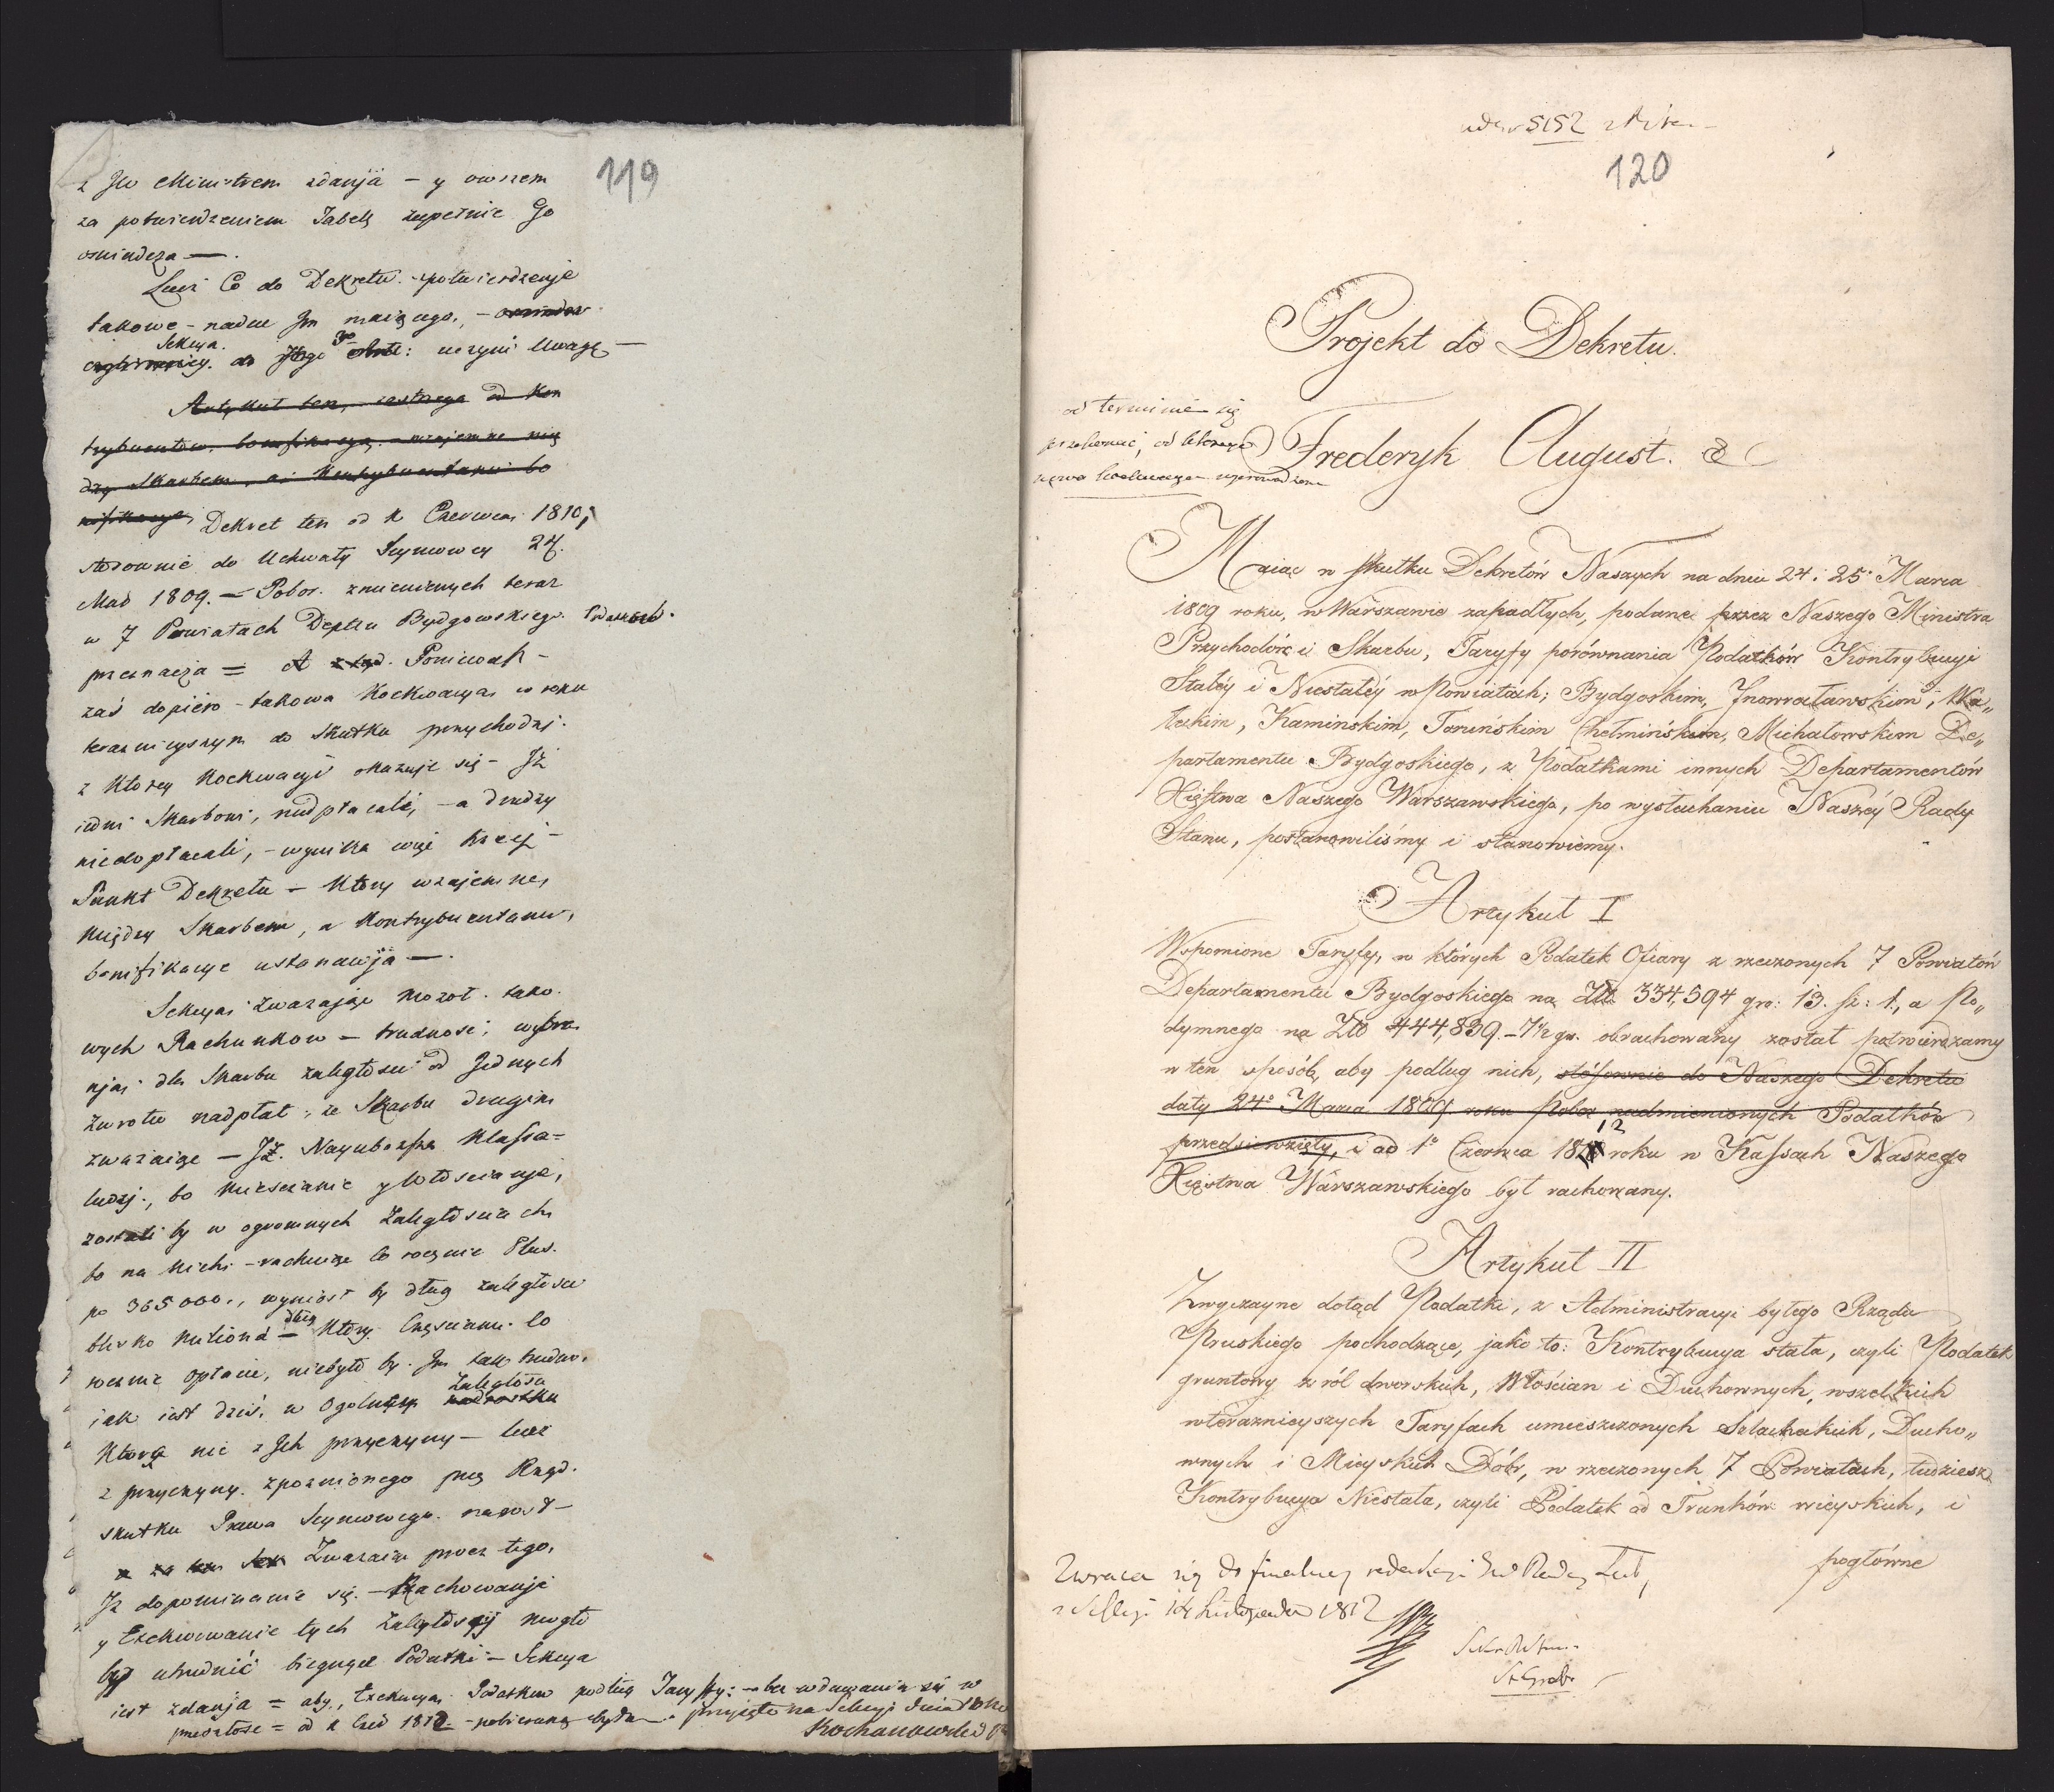 119
z JW Ministrem zdanja – y owszem
za potwierdzeniem Tabel zupełnie Go
oswiadcza —.
Lecz Co do Dekretu potwierdzenje
takowe – nadac Jm maiącego, –
Sekcya do uczyni Uwagę —
Artykuł ten, zastrzega od Kon
trybuentow bonifikacyą wzajemne mię
dzy Skarbem, a Kontrybuentami bo
nifikacye Dekret ten od 1 Czerwca 1810,
stosownie do Uchwały Seymowey 24.
Mar 1809. – Pobor zmienionych teraz
w 7 Powiatach Deptu Bydgowskiego Podatkow.
przeznacza = A Poniewaƶ –
zaś dopiero – takowa Koekwacya w roku
teraznieyszym do Skutku przychodzi.
z Ktorey Koekwacyi okazuje się – Jż
iedni Skarbowi, nadpłacali, – a drudzy
niedopłacali, – wynika więc trzeci –
Punkt Dekretu – Ktory wzajemne,
między Skarbem, a Kontrybuentami,
bonifikacye ustanawja —.
Sekcya zwazając mozoł tako
wych Rachunkow – trudnosc wybra
nja dla Skarbu zaległosci od Jednych
zwrotu nadpłat ze Skarbu drugim
zwazaiąc – Jż. Nayuboższa Klassa =
ludzi, bo Mieszczanie y Włoscianje,
zostali by w ogromnych Zaległosciach
bo na Nich – rachuiąc Co rocznie Plus.
po 365000., wyniosł by dług zaległosci
blisko Miliona – Ktory Częsciami Co
rocznie opłacic, niebyło by Jm tak trudno.
zaległosci
jak jest dziś, w Ogolnym nadrostku
Ktora nie z Jch przyczyny – lecz
z przyczyny zpoznionego przez Rząd.
skutku Prawa Seymowego narosł –
Zwazaiąc procz tego,
Jż dopominanie się – Rachowanje
y Exekwowanie tych Zaległosci mogło
by utrudnić biegnące Podatki – Sekcya
iest zdanja = aby, Exekucya Podatkow podług Taryffy: – bez wdawania się w
przeszłosc = od 1 Czer 1812 – pobieraną była. – przyięto na Sekcyi dnia
Kochanowski
5152
120
Projekt do Dekretu.
od terminu się
przekonać, od którego
nową Coekwacya wprowadzona
Frederyk August. &c
Maiąc w skutku Dekretów Naszych na dniu 24 i 25 Marca
1809 roku, w Warszawie zapadłych, podane przez Naszego Ministra
Przychodów i Skarbu, Taryfy porównania Podatków Kontrybucyi
Stałéy i Niestałéy w Powiatach; Bydgoskim, Jnowrocławskim, Wa„
łeckim, Kamińskim, Toruńskim Chełmińskim, Michałowskim De„
partamentu Bydgoskiego, z Podatkami innych Departamentów
Xięstwa Naszego Warszawskiego, po wysłuchaniu Naszéy Rady
Stanu, postanowiliśmy i stanowiemy.
Artykuł I
Wspomione Taryfy, w których Podatek Ofiary z rzeczonych 7 Powiatów
Departamentu Bydgoskiego na Złł 334,594 gr: 13. sz: 1, a Po„
dymnego na Złł 444,839. – 7 1/2 gr. obrachowany został potwierdzamy
w ten sposób, aby podług nich, stósownie do Naszego Dekretu
daty 24° Marca 1809. roku Pobor nadmienionych Podatków
przedsiewzięty, i od 1° Czerwca 1812 roku w Kassach Naszego
Xięstwa Warszawskiego był rachowany.
Artykuł II
Zwyczayne dotąd Podatki, z Administracyi byłego Rządu
Pruskiego pochodzące, jako to: Kontrybucya stała, czyli Podatek
gruntowy z ról dworskich, Włościan i Duchownych, wszelkich
w teraznieyszych Taryfach umieszczonych Szlacheckich, Ducho„
wnych i Mieyskich Dóbr, w rzeczonych 7 Powiatach, tudziesz
Kontrybucya Niestała, czyli Podatek od Trunków wieyskich, i
pogłówne
Zwraca się do finalney redakcyi
z Sessyi 14 Listopada 1812